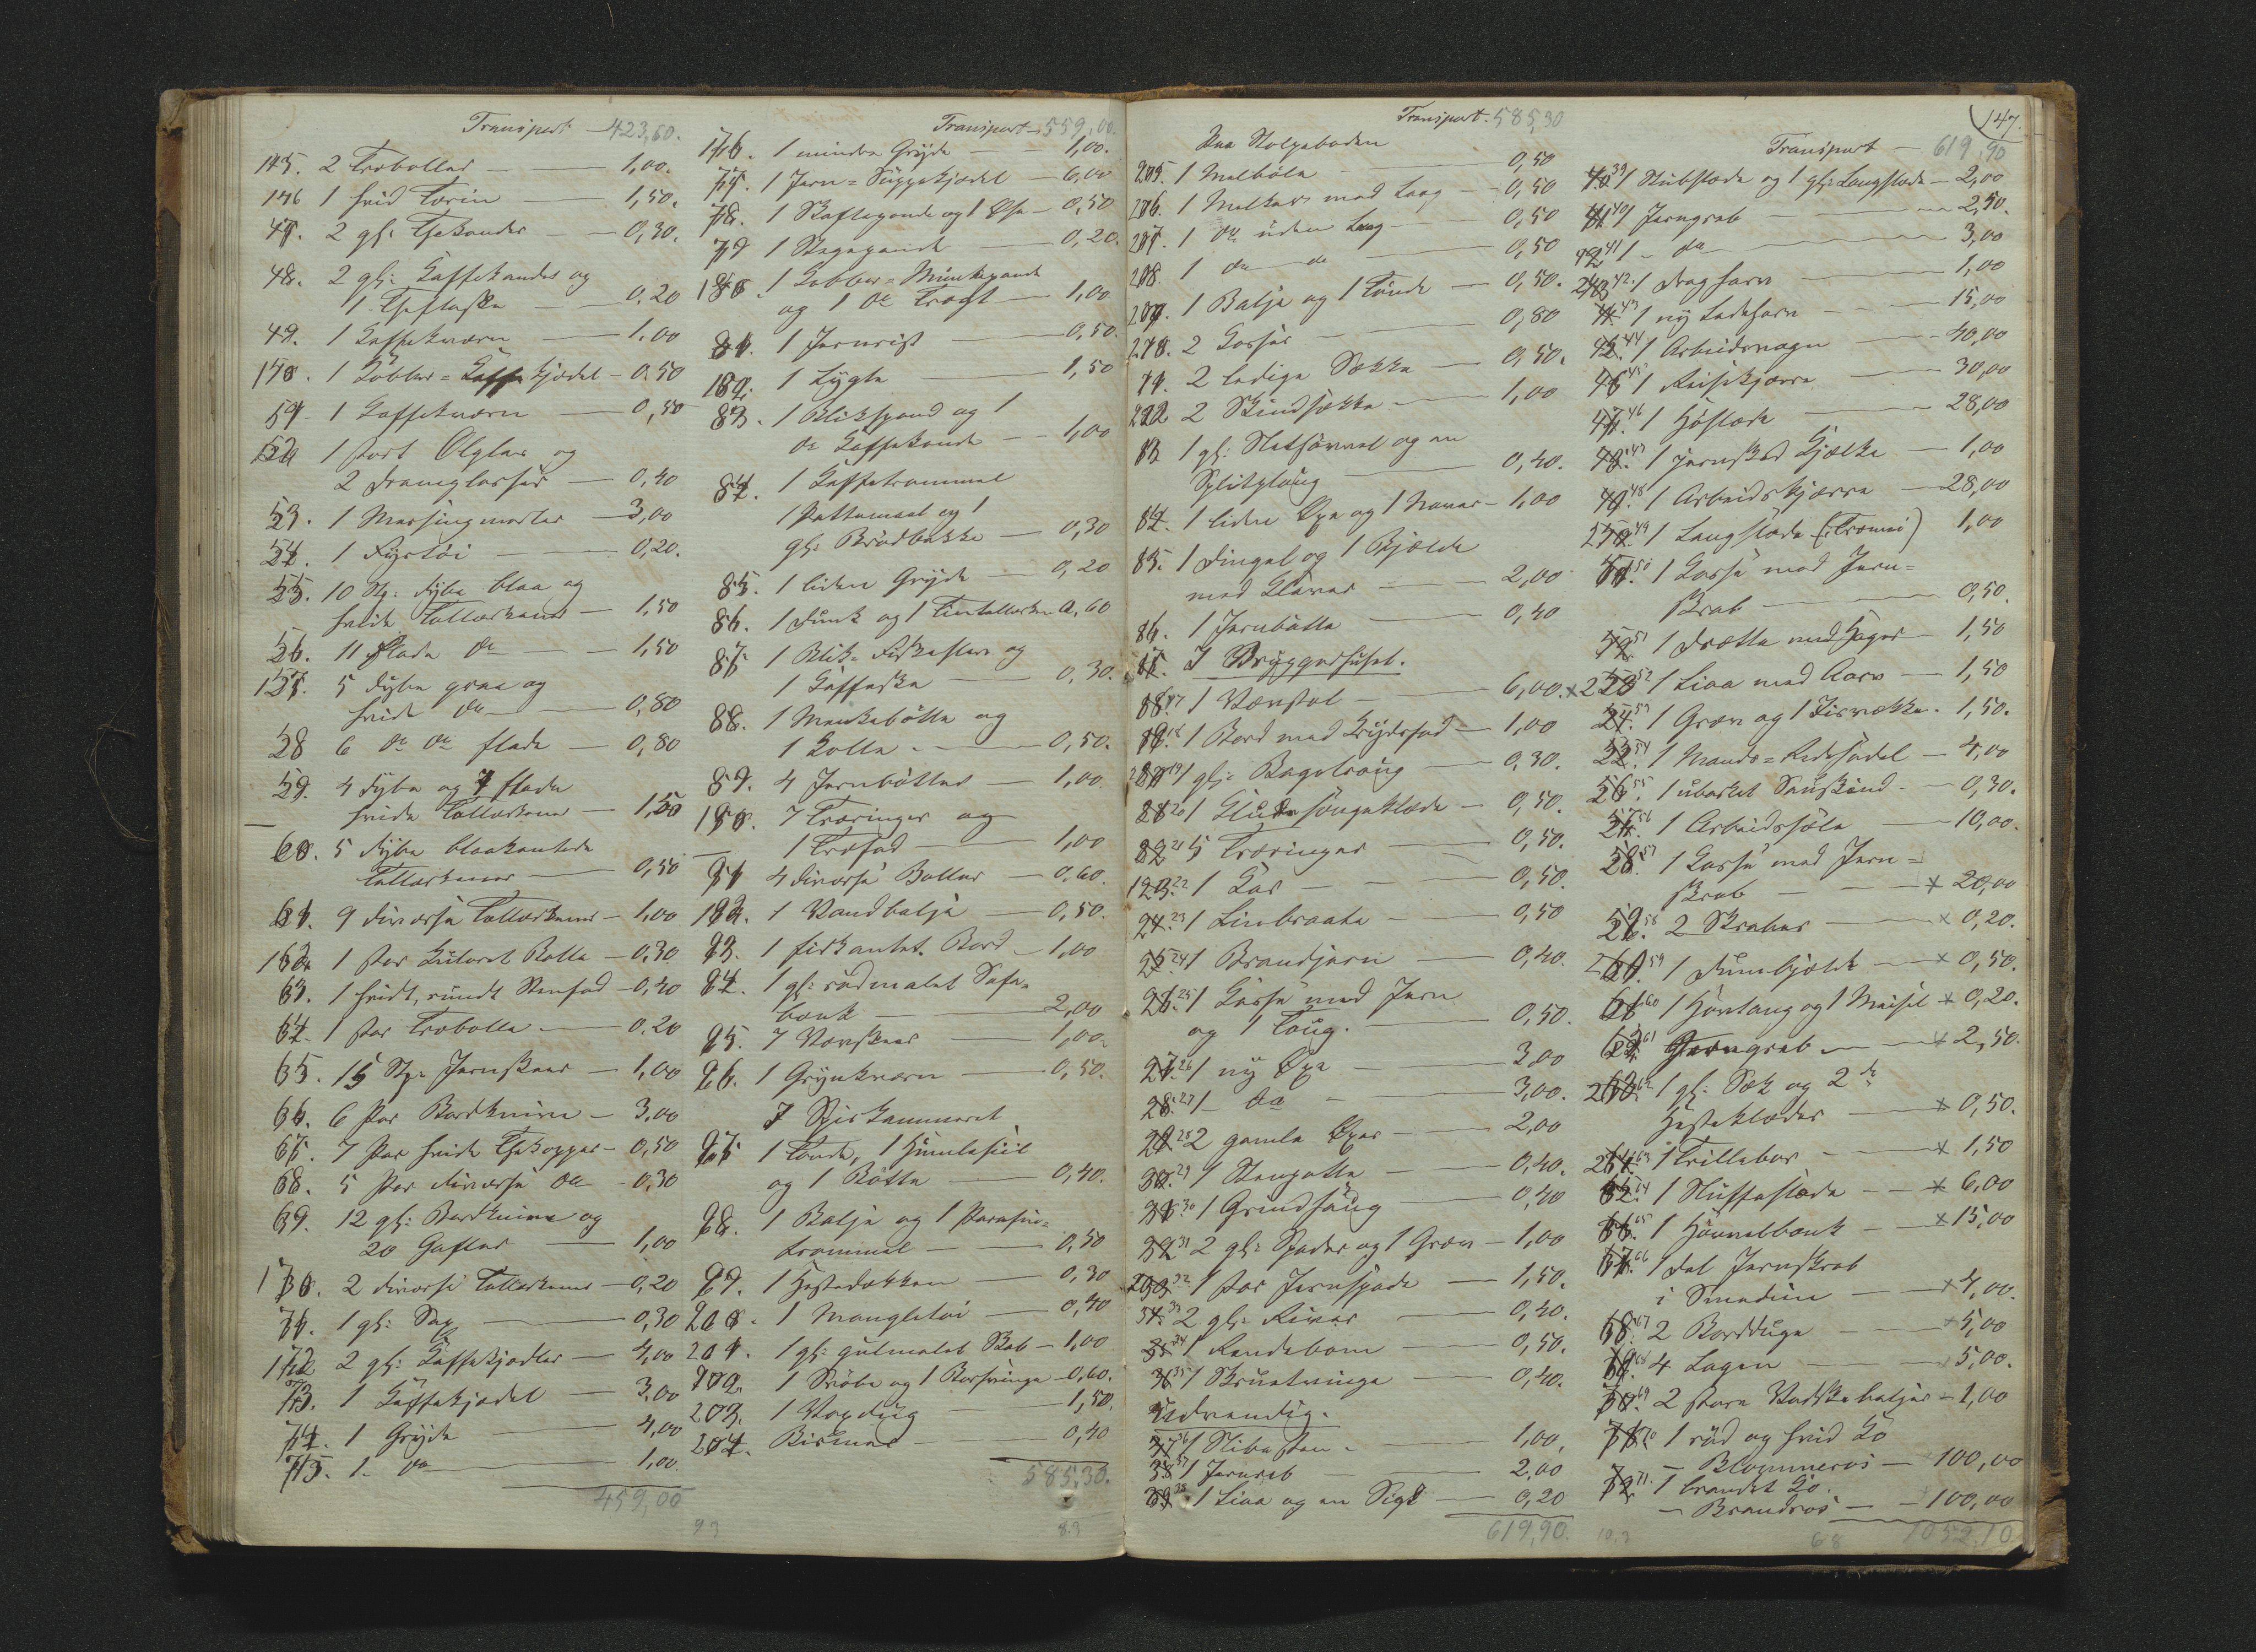 Transport - 423,60.
145. 2 Træboller - 1,00.
146 1 hvid Terin - 1,50.
47. 2 gl: Thekander - 0,30.
48. 2 gl: Kaffekander og
1 Theflaske - 0,20
49. 1 Kaffekværn - 1,00
150. 1 Kobber=Kaffekjedel - 0,50
51. 1 Kaffekværn - 0,50
152 1 stort Ølglas og
2 Dramglasser - 0,40
53. 1 Messingmorter - 3,00
54. 1 Fyrtøi - 0,20.
55. 10 St: dybe blaa og
hvide Tallerkener - 1,50
56. 11 flade do - 1,50
157. 5 dybe graa og
hvide do - 0,80
58 6 do do flade - 0,80
59. 4 dybe og 7 flade
hvide Tallerkener - 1,50
60. 5 dybe blaakantede
Tallerkener - 0,50
61. 9 diverse Tallerkener - 1,00
162. 1 stor Bolle - 0,30
63. 1 hvidt, rundt Stenfad - 0,40
64. 1 stor Træbolle - 0,20
65. 15 St: Jernskeer - 1,00
66. 6 Par Bordknive - 3,00
67. 7 Par hvide Thekopper - 0,50
68. 5 Par diverse do - 0,30
69. 12 gl: Bordknive og
20 Gafler - 1,00
170. 2 diverse Tallerkener - 0,20
71. 1 gl: Sag - 0,30
172 2 gl: Kaffekjedler - 4,00
73. 1 Kaffekjedel - 3,00
74. 1 Gryde - 4,00
75. 1 do - 1,00.
459,00
Transport - 559,00.
176. 1 mindre Gryde - 1,00.
77. 1 Jern=Suppekjedel - 6,00
78. 1 Skaftepande og 1 Øse - 0,50
79 1 Stegepande - 0,20.
180. 1 Kobber=Munkepande
og 1 do Tragt - 1,00
81. 1 Jernrist - 0,50.
182. 1 Lygte - 1,50
83. 1 Blikspand og 1
do Kaffekande - 1,00
84. 1 Kaffetrommel
1 Pottemaal og 1
gl: Brødbakke - 0,30
85. 1 liden Gryde - 0,20
86. 1 Dunk og 1 Tintallerken 0,60
87. 1 Blik= og
1 Kaffeske - 0,30.
88. 1 Maskebøtte og
1 Kolle - 0,50.
89. 4 Jernbøtter - 1,00.
190. 7 Træringer og
1 Træfad - 1,00
91 4 diverse Boller - 0,60.
192. 1 Vandbalje - 0,50.
93. 1 firkantet Bord - 1,00
94. 1 gl: rødmalet Sofa=
bænk - 2,00
95. 7 - 1,00.
96. 1 Grynkværn - 0,50.
I Spiskammeret
97. 1 Tønde, 1
og 1 Bøtte - 0,40.
98. 1 Balje og 1
trommel - 0,50
99. 1 Hestedækken - 0,30
200. 1 Mangletøi - 0,40
201. 1 gl: gulmalet Skab - 1,00
202. 1 og 1 - 0,60.
203. 1 Voxdug - 1,50.
204. Bismer - 0,40
585,30.
93
8.3
Transport. 585,30
Paa Stolpeboden
205. 1 Melbøle - 0,50
206. 1 Melkar med Laag - 0,50
207. 1 do uden Laag - 0,50
208. 1 do do - 0,50
209. 1 Balje og 1 Tønde - 0,50.
210. 2 Kasser - 0,80
11. 2 ledige Sække - 0,50.
212 2 Skindsække - 1,00
13 1 gl: Slethøvel og en
Splitploug - 0,40.
14. 1 liden Øxe og 1 Naver - 1,00
15. 1 Dingel og 1 Bjelde
med Klaver - 2,00
16. 1 Jernbøtte - 0,40
I Bryggerhuset.
17 1 Vævstol - 6,00.
18 1 Bord med Krydsfod - 1,00
19 1 gl: Bagetroug - 0,30.
20 1 - 0,50.
21 5 Træringer - 0,50.
22 1 Kar - 0,50.
23 1 Linbraate - 0,50
24 1 Brandjern - 0,40.
25 1 Kasse med Jern
og 1 Toug. - 0,50.
26 1 ny Øxe - 3,00
27 1 do - 3,00.
28 2 gamle Øxer - 2,00
29 1 Stenpotte - 0,40.
30 1 Grindsaug - 0,40
31 2 gl: Spader og 1 Græv - 1,00
32 1 stor Jernspade - 1,50.
33 2 gl: River - 0,40.
34 1 Rendebom - 0,50.
35 1 Skruetvinge - 0,40.
Udvendig.
36 1 Slibesten - 1,00.
37 1 Jernreb - 2,00
38 1 Liaa og en Sigd - 0,20
619,90.
147.
Transport - 619,90
39 1 Stubslæde og 1 gl: Langslæde - 2,00
40 1 Jerngreb - 2,50.
41 1 do - 3,00
42. 1 Dragharv - 1,00
43 1 ny Ladeharv - 15,00
44 1 Arbeidsvogn - 40,00
45 1 Reisekjærre - 30,00
46 1 Høslæde - 28,00
47 1 jernskod Kjelke - 1,00
48 1 Arbeidskjærre - 28,00
49 1 Langslæde (:Tromsi) 1,00
50 1 Kasse med Jern=
skrab - 0,50.
51 1 Drætte med Hager - 1,50
x 52 1 Liaa med Aarv - 1,50
53 1 Græv og 1 Isrække. 1,50.
54 1 Mands=Ridesadel - 4,00
55 1 ubarket Saueskind - 0,30.
56 1 Arbeidssele - 10,00.
57 1 Kasse med Jern=
skrab - x 20,00
58 2 Skraber - x 0,20.
59 1 Dumbjelde - x 0,50.
60 1 Hovtang og 1 Meisel x 0,20.
61 Jerngreb - x 2,50.
62 1 gl: Sæk og 2 de
Hesteklæder - x 0,50.
63 1 Trillebør - x 1,50
64 1 Sluffeslæde - x 6,00
65 1 Høvelbænk - x 15,00
66 1 Del Jernskrab
i Smedien - x 4,00.
67 2 Bordduge - x 5,00
68 4 Lagen - x 5,00.
69 2 store Vadskebaljer - 1,00
70 1 rød og hvid Ko
- Blommeros - 100,00
71. 1 brandet Ko.
- Brandros - 100,00
10.3
68
1052,10